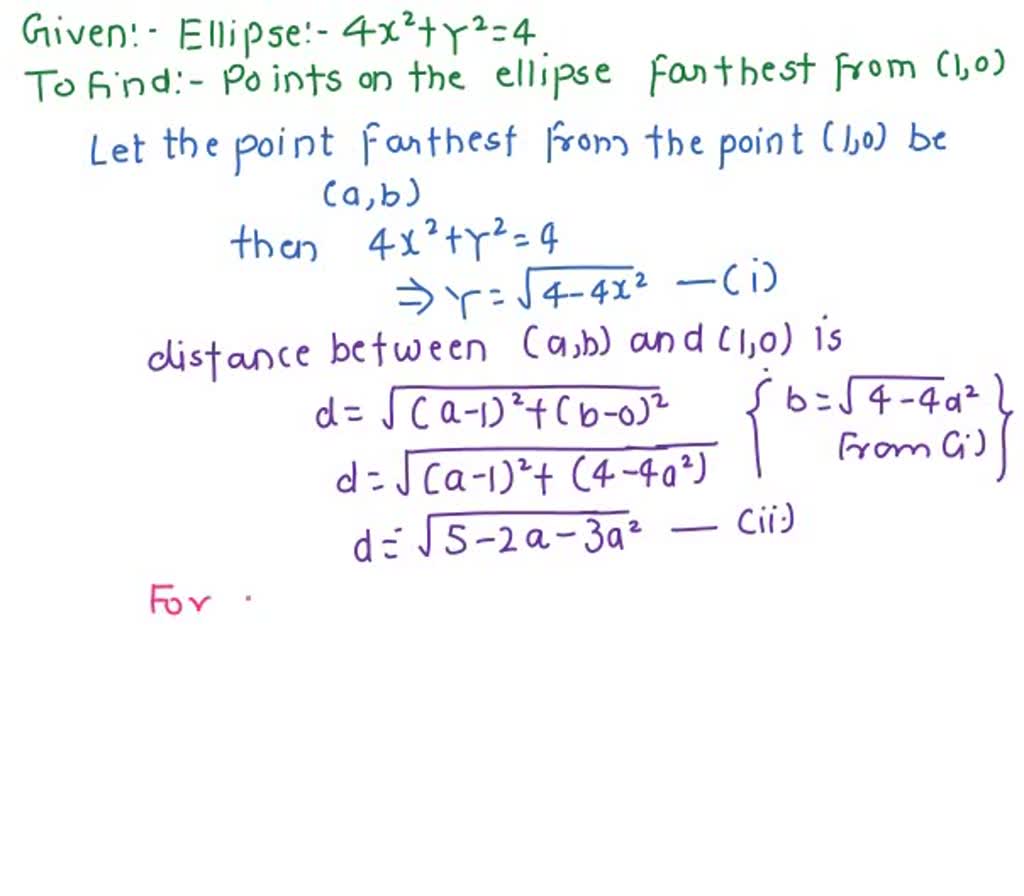 Given:- Ellipse:- 4x²+y²=4
To find:- Points on the ellipse farthest from (1,0)
Let the point farthest from the point (1,0) be
(a,b)
then 4x²+y²=4
⇒ y=√(4-4x²) —(i)
distance between (a,b) and (1,0) is
d=√((a-1)²+(b-0)²) {b=√(4-4a²)
d=√((a-1)²+(4-4a²)) from (i)}
d=√(5-2a-3a²) — (ii)
For